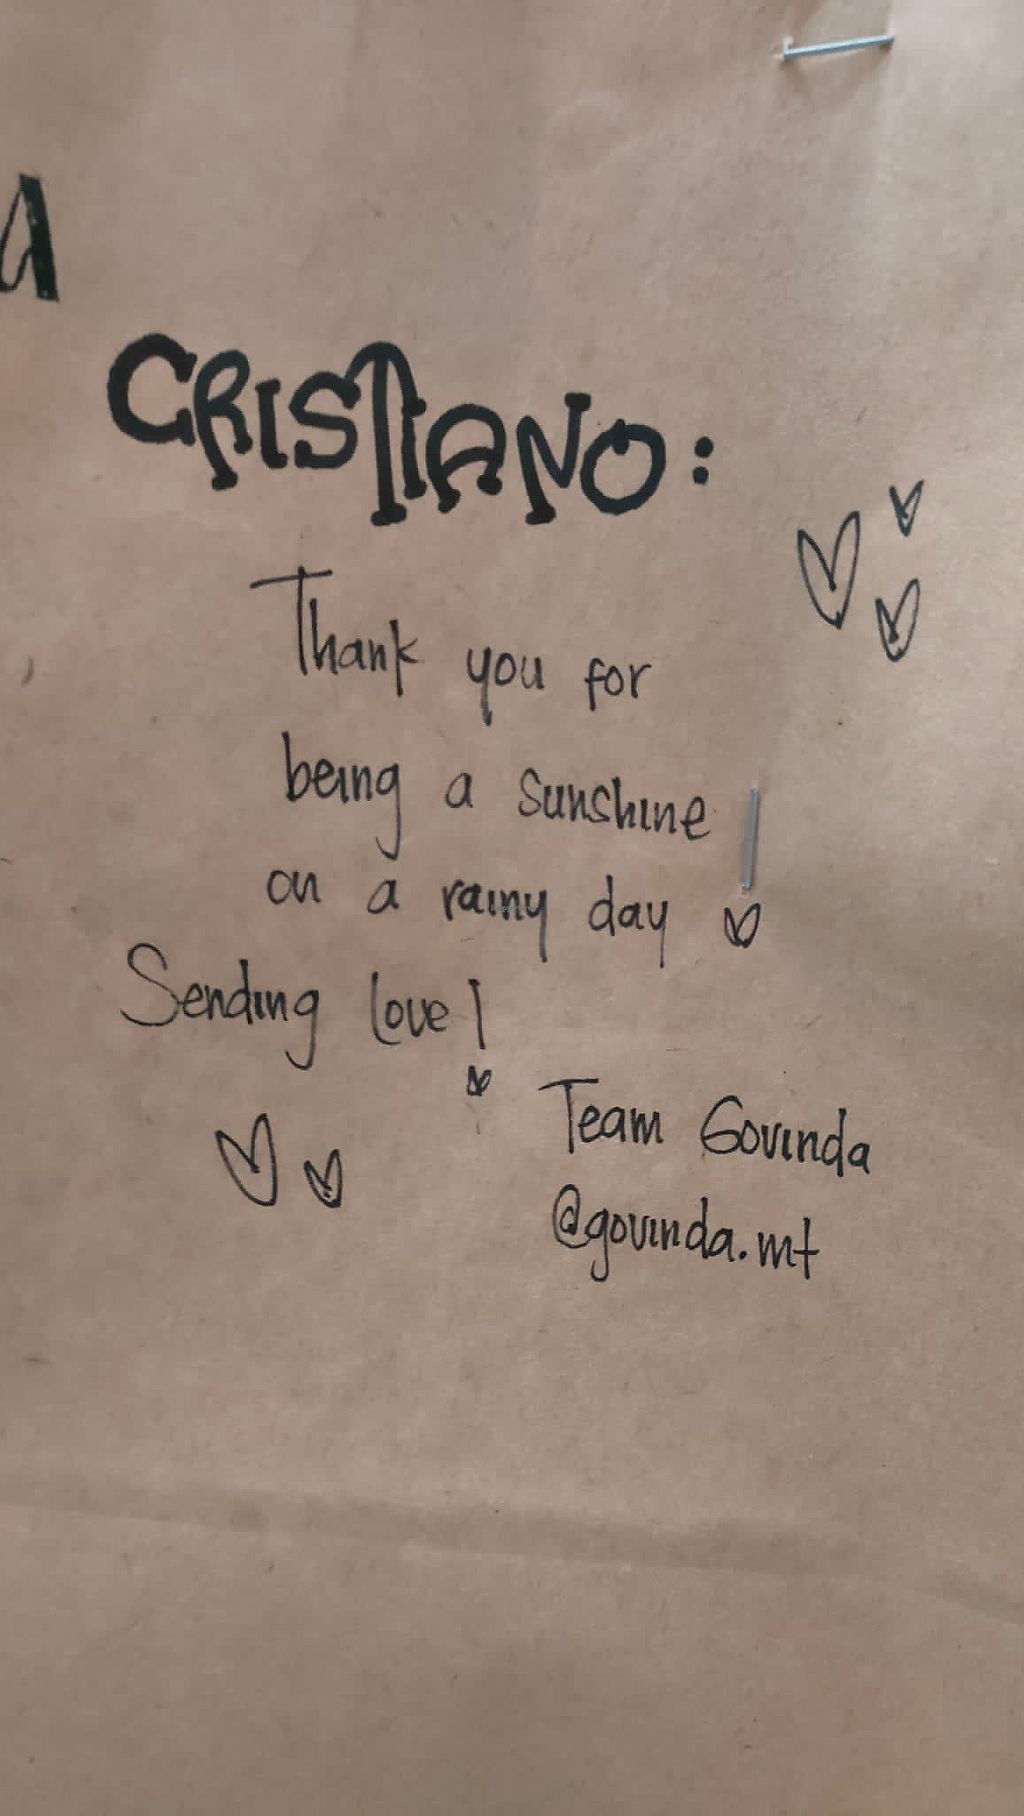 a
CRISTIANO:
Thank you for
being a sunshine
on a rainy day
Sending love!
Team Govinda
@govinda.mt